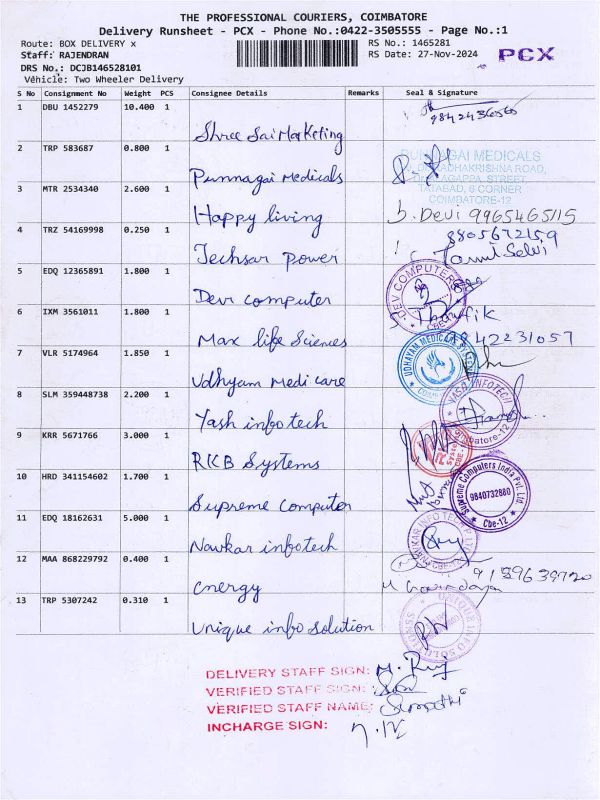 THE PROFESSIONAL COURIERS, COIMBATORE
Delivery Runsheet - PCX - Phone No.:0422-3505555 - Page No.:1
Route: BOX DELIVERY x
RS No.: 1465281
Staff: RAJENDRAN
RS Date: 27-Nov-2024
PCX
DRS No.: DCJB146528101
Vehicle: Two Wheeler Delivery
S No Consignment No Weight PCS Consignee Details Remarks Seal & Signature
1 DBU 1452279 10.400 1
Shree Sai Marketing
9842436565
2 TRP 583687 0.800 1
Punnagai Medicals
PUNNAGAI MEDICALS
TATABAD, 6 CORNER
COIMBATORE-12
3 MTR 2534340 2.600 1
Happy living
b. Devi 9965465115
4 TRZ 54169998 0.250 1
Techsar power
8805672159
Tamil Selvi
5 EDQ 12365891 1.800 1
Devi computer
DEV COMPUTERS
6 IXM 3561011 1.800 1
Max life Sciences
9842231057
7 VLR 5174964 1.850 1
Udhyam Medi care
8 SLM 359448738 2.200 1
Yash infotech
YASH INFOTECH
9 KRR 5671766 3.000 1
RKB Systems
10 HRD 341154602 1.700 1
Supreme Computer
Supreme Computers India Pvt. Ltd
9840732880
Cbe-12
11 EDQ 18162631 5.000 1
Navkar infotech
12 MAA 868229792 0.400 1
Cnergy
9159639720
13 TRP 5307242 0.310 1
Unique info solution
UNIQUE INFO SOLUTIONS
DELIVERY STAFF SIGN:
VERIFIED STAFF SIGN:
VERIFIED STAFF NAME: Sumathi
INCHARGE SIGN: